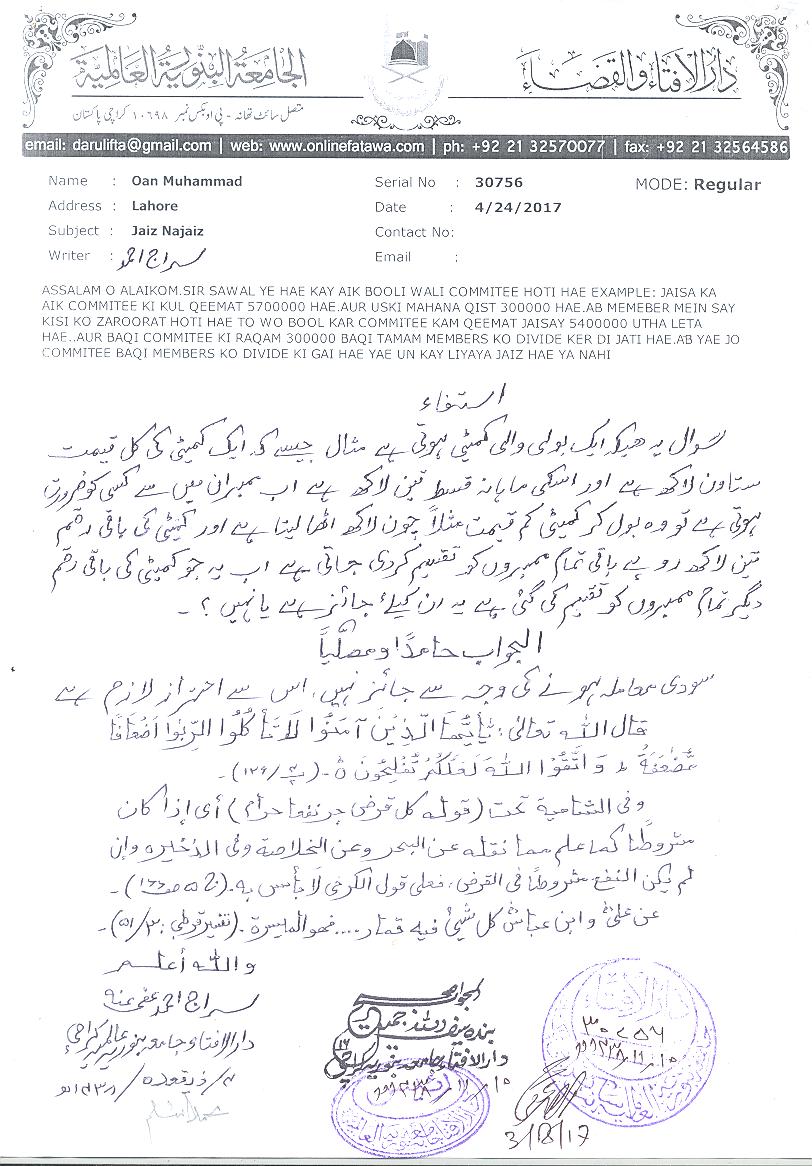 الجامعة البنورية العالمية
دار الافتاء والقضاء
متصل سائٹ تھانہ - پی او بکس نمبر ۱۰۶۹۸ کراچی پاکستان
email: darulifta@gmail.com | web: www.onlinefatawa.com | ph: +92 21 32570077 | fax: +92 21 32564586
Name : Oan Muhammad Serial No : 30756 MODE: Regular
Address : Lahore Date : 4/24/2017
Subject : Jaiz Najaiz Contact No:
Writer : سراج احمد Email :
ASSALAM O ALAIKOM.SIR SAWAL YE HAE KAY AIK BOOLI WALI COMMITEE HOTI HAE EXAMPLE: JAISA KA
AIK COMMITEE KI KUL QEEMAT 5700000 HAE.AUR USKI MAHANA QIST 300000 HAE.AB MEMEBER MEIN SAY
KISI KO ZAROORAT HOTI HAE TO WO BOOL KAR COMMITEE KAM QEEMAT JAISAY 5400000 UTHA LETA
HAE..AUR BAQI COMMITEE KI RAQAM 300000 BAQI TAMAM MEMBERS KO DIVIDE KER DI JATI HAE.AB YAE JO
COMMITEE BAQI MEMBERS KO DIVIDE KI GAI HAE YAE UN KAY LIYAYA JAIZ HAE YA NAHI
استفتاء
سوال یہ ھیکہ ایک بولی والی کمیٹی ہوتی ہے مثال جیسے کہ ایک کمیٹی کی کل قیمت
ستاون لاکھ ہے اور اسکی ماہانہ قسط تین لاکھ ہے اب ممبران میں سے کسی کو ضرورت
ہوتی ہے تو وہ بول کر کمیٹی کم قیمت مثلاً چون لاکھ اٹھا لیتا ہے اور کمیٹی کی باقی رقم
تین لاکھ روپے باقی تمام ممبروں کو تقسیم کردی جاتی ہے اب یہ جو کمیٹی کی باقی رقم
دیگر تمام ممبروں کو تقسیم کی گئی ہے یہ ان کیلئے جائز ہے یا نہیں ؟ -
الجواب حامداً ومصلیاً
سودی معاملہ ہونے کی وجہ سے جائز نہیں، اس سے احتراز لازم ہے
قال الله تعالیٰ: یٰاَیُّهَا الَّذِیْنَ آمَنُوْا لَا تَأْكُلُوا الرِّبٰوا اَضْعَافًا
مُّضٰعَفَةً ۪ وَ اتَّقُوْا اللهَ لَعَلَّكُمْ تُفْلِحُوْنَ ۝ -
وفی الشامیة تحت (قوله کل قرض جر نفعا حرام) أی إذا کان
مشروطًا کما علم مما نقله عن البحر وعن الخلاصة وفی الذخیرہ وإن
لم یکن النفع مشروطًا فی القرض، فعلی قول الکرخی لا بأس به. (ج ۵ ص ۱۶۶) -
عن علیؓ وابن عباسؓ کل شیئ فیه قمار .... فهو المیسرة. (تفسیر قرطبی: ۵۱/۳) -
والله أعلم
سراج احمد عفی عنه
دارالافتاء جامعہ بنوریہ عالمیہ کراچی
ذیقعدہ / ۱۴۳۸ھ
الجواب صحیح
دارالافتاء جامعہ بنوریہ کراچی
دار الافتاء
۳۰۷۵۶
3/8/17